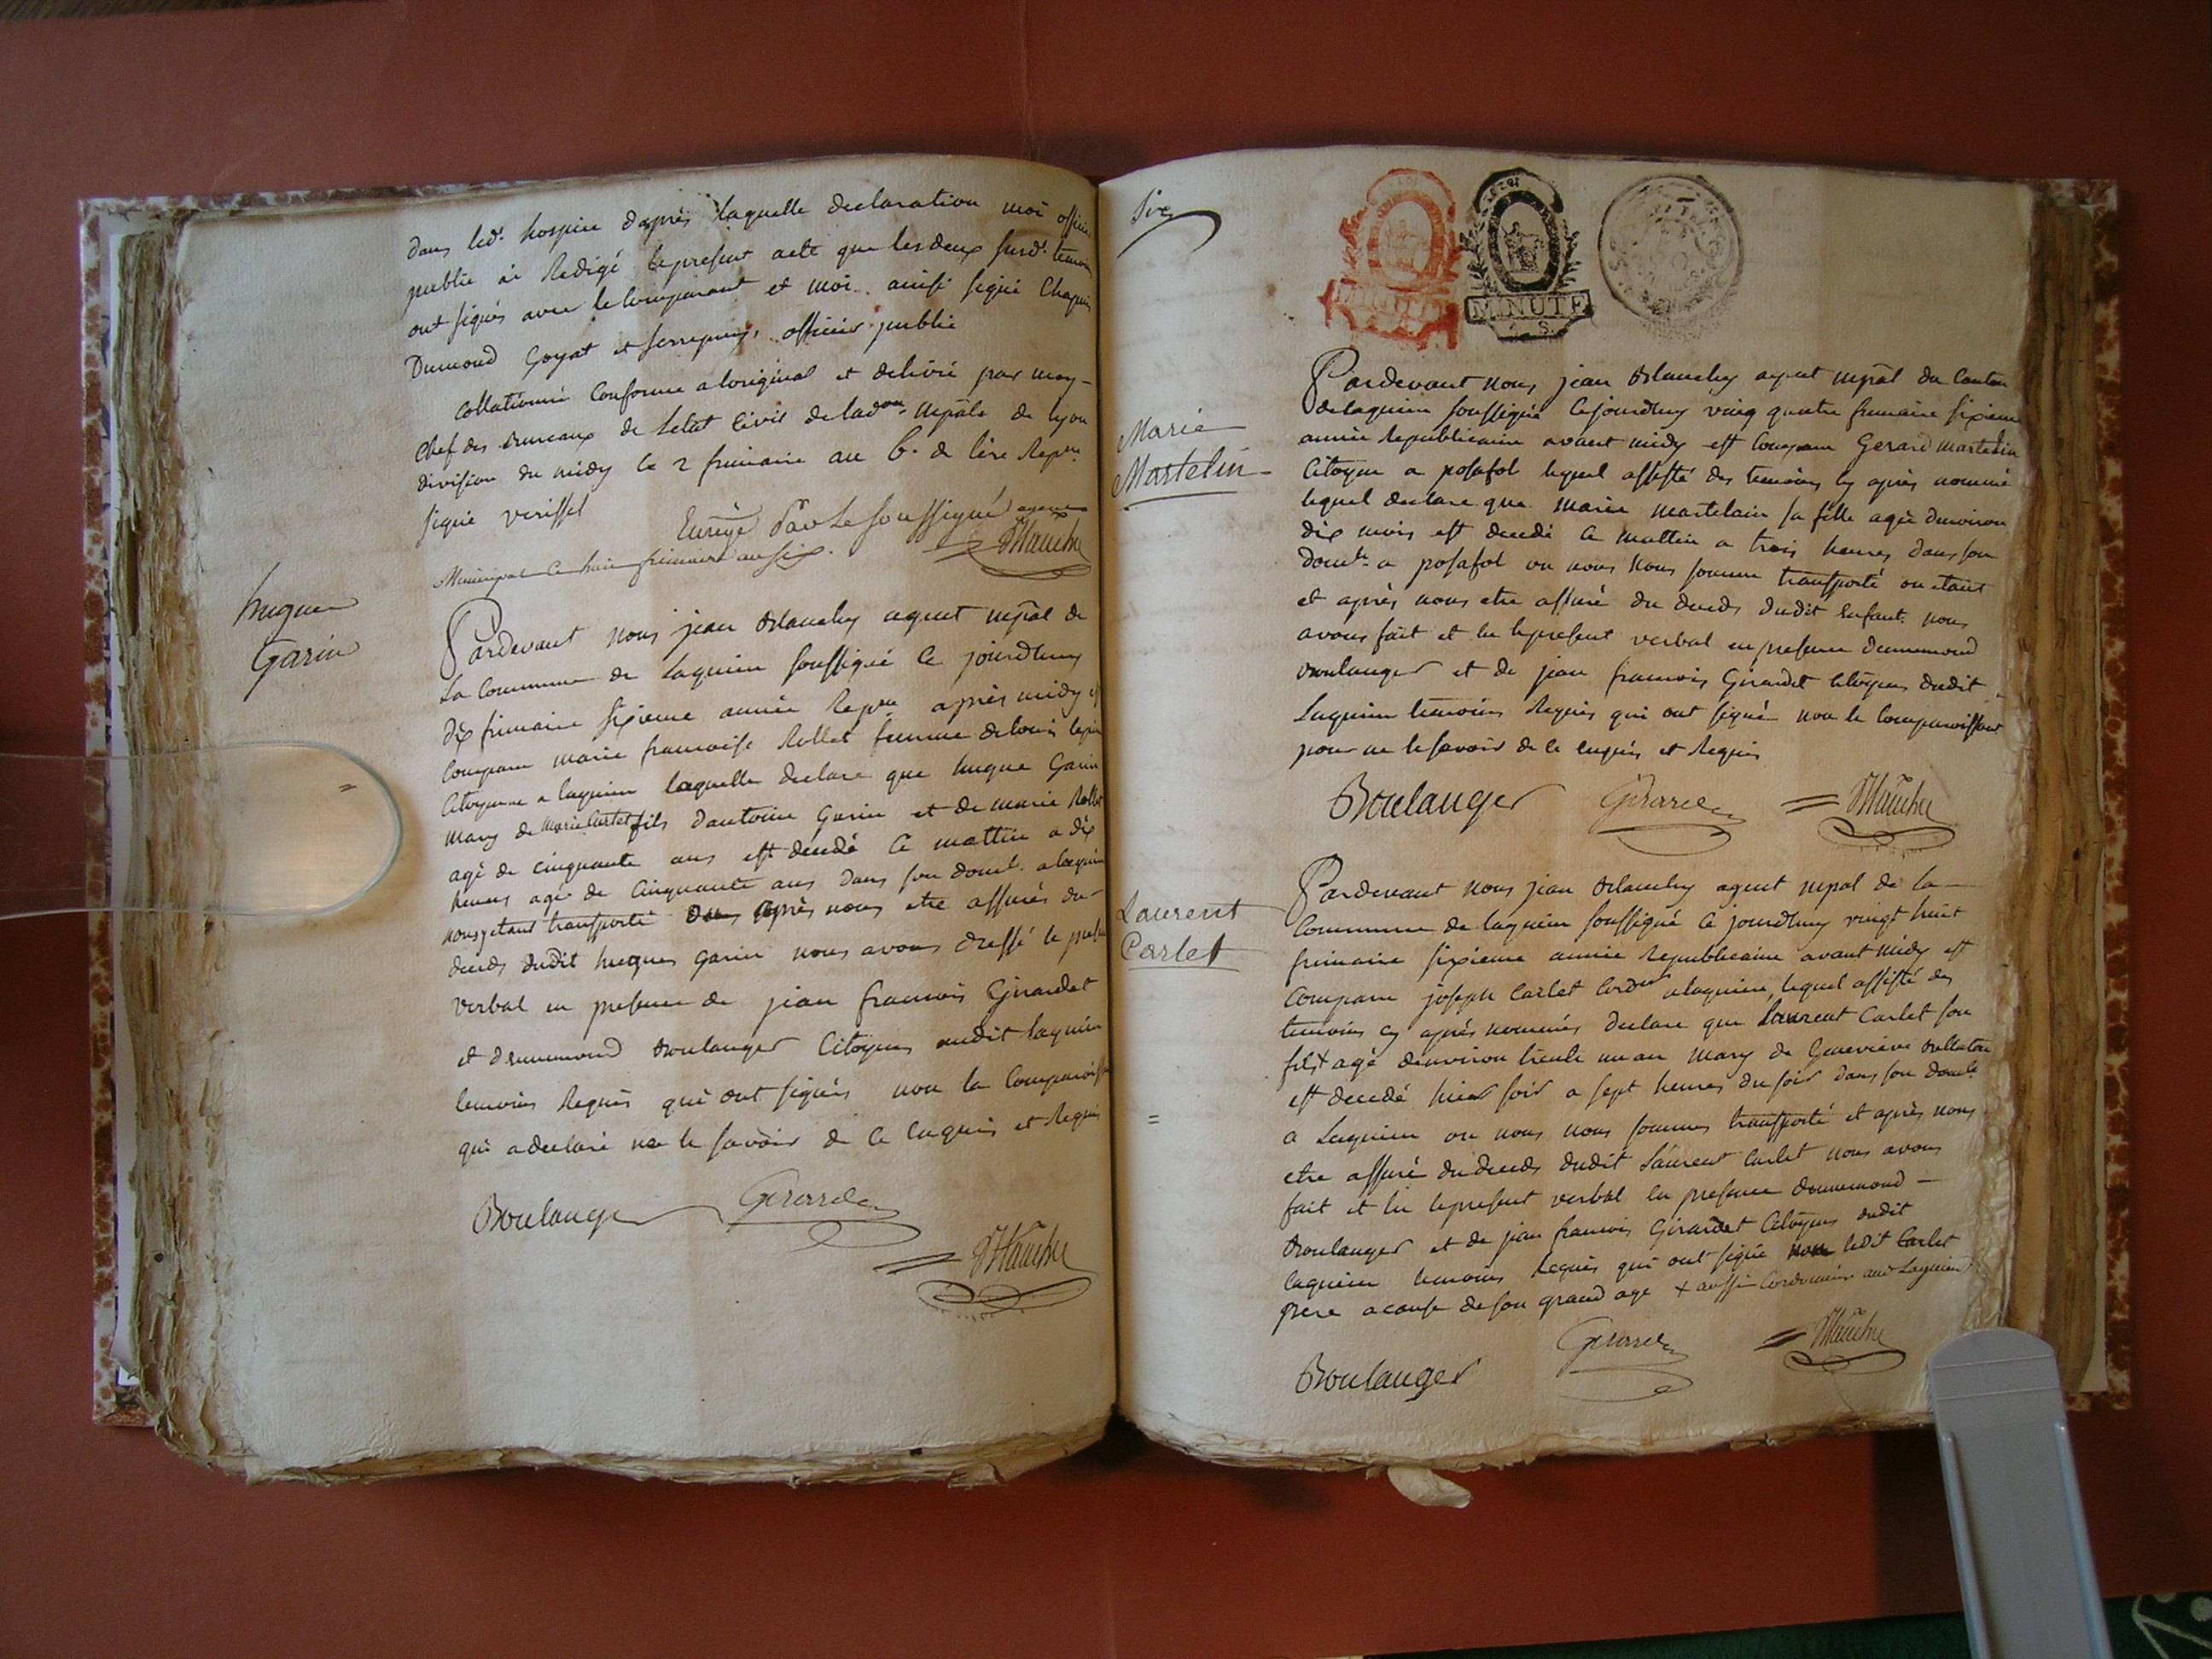 dans led. hospice daprès laquelle declaration moi officier
public ai Redigé le present acte que les deux susd. temoins
ont signés avec le Comparant et moi. ainsi signé Chapuis
Dumond Goyat et officier public
Collationné Conforme a loriginal et delivré par moy
Chef des Bureaux de Letat Civil de lad. mpale de Lyon
division du midy le 2 frimaire an 6. de lère Repne
signé verissel
Enrégé Par Le soussigné agent
Municipal Ce huit frimaire an six.
hugue
Garin
Pardevant nous jean agent mpal de
La Commune de Lagnieu soussigné Ce jourdhuy
dix frimaire sixieme année Repne après midy est
Comparu marie francoise Rollet femme de louis
Citoyenne a lagnieu laquelle declare que hugue Garin
mary de Marie Carlet fils dantoine Garin et de marie Rollet
agé de cinquante ans est decedé Ce mattin a dix
heures agé de Cinquante ans dans son domle. a lagnieu
nous y etans transporté après nous etre assurés du
deceds dudit hugues Garin nous avons dressé le present
verbal en presence de jean francois Girardet
et dennemond Boulanger Citoyens audit Lagnieu
temoins Requis qui ont signés non la Comparoissante
qui a declaré ne le savoir de Ce Enquis et Requis
Boulanger Girardet
Six
MINUTE
Marie
Martelin
Pardevant nous jean agent mpal du Canton
de Lagnieu soussigné Cejourdhuy vingt quatre frimaire sixieme
année Republicaine avant midy est Comparu Gerard martelin
Citoyen a posafol lequel assisté des temoins Cy après nommé
lequel declare que marie martelain sa fille agée denviron
dix mois est decedé Ce mattin a trois heures dans son
domle. a posafol ou nous nous somme transporté ou etant
et après nous etre assuré du deceds dudit enfant nous
avons fait et lu le present verbal en presence dennemond
Boulanger et de jean francois Girardet Citoyens dudit
Lagnieu temoins Requis qui ont signé non le Comparoissant
pour ne le savoir de Ce enquis et Requis
Boulanger Girardet
Laurent
Carlet
Pardevant nous jean agent mpal de La
Commune de Lagnieu soussigné Ce jourdhuy vingt huit
frimaire sixieme année Republicaine avant midy est
Comparu joseph Carlet Cordr a lagnieu, lequel assisté des
temoins Cy après nommés declare que Laurent Carlet son
fils + agé denviron trente un an mary de Genevieve
est decedé hier soir a sept heures du soir dans son domle.
a Lagnieu ou nous nous sommes transporté et après nous
etre assuré du deceds dudit Laurent Carlet nous avons
fait et lu le present verbal en presence dennemond
Boulanger et de jean francois Girardet Citoyens dudit
Lagnieu temoins Requis qui ont signé non ledit Carlet
pere a cause de son grand age + aussi Cordonnier aud Lagnieu
Boulanger Girardet